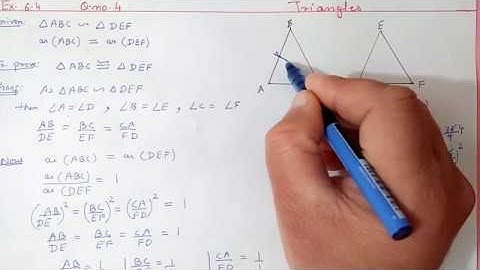 Ex. 6.4 Q.no. 4 Triangles
Given: △ABC ∼ △DEF
ar (ABC) = ar (DEF)
To prove: △ABC ≅ △DEF
As △ABC ∼ △DEF
then ∠A = ∠D , ∠B = ∠E , ∠C = ∠F
AB/DE = BC/EF = CA/FD
Now ar (ABC) = ar (DEF)
ar (ABC)/ar (DEF = 1
(AB/DE)² = (BC/EF)² = (CA/FD)² = 1
AB/DE = BC/EF = CA/FD = 1
AB = 1 | BC = 1 | CA/FD = 1/1
B
A
E
F